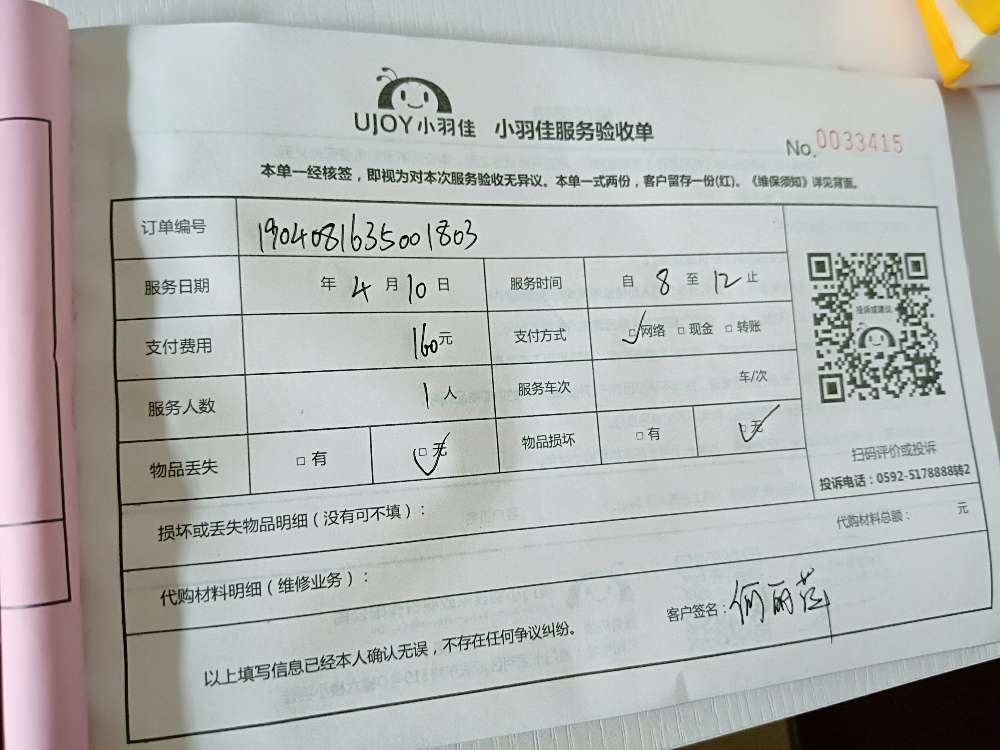 UJOY小羽佳 小羽佳服务验收单
No.0033415
本单一经核签，即视为对本次服务验收无异议。本单一式两份，客户留存一份(红)。《维保须知》详见背面。
订单编号 1904081635001803
服务日期 年 4 月 10 日 服务时间 自 8 至 12 止
支付费用 160元 支付方式 □网络 □现金 □转账
投诉或建议
服务人数 1 人 服务车次 车/次
物品丢失 □有 □无 物品损坏 □有 □无
扫码评价或投诉
投诉电话：0592-5178888转2
损坏或丢失物品明细（没有可不填）：
代购材料明细（维修业务）： 代购材料总额： 元
以上填写信息已经本人确认无误，不存在任何争议纠纷。 客户签名：